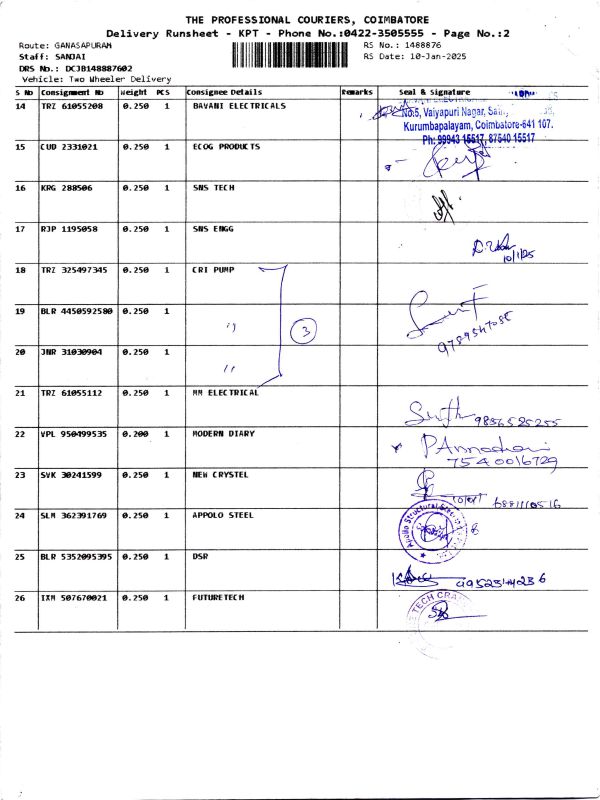 THE PROFESSIONAL COURIERS, COIMBATORE
Delivery Runsheet - KPT - Phone No.:0422-3505555 - Page No.:2
Route: GANASAPURAM RS No.: 1488876
Staff: SANJAI RS Date: 10-Jan-2025
DRS No.: DCJB148887602
Vehicle: Two Wheeler Delivery
S No Consignment No Weight PCS Consignee Details Remarks Seal & Signature
14 TRZ 61055208 0.250 1 BAVANI ELECTRICALS
No:5, Vaiyapuri Nagar,
Kurumbapalayam, Coimbatore-641 107.
Ph: 99943 15517, 87540 15517
15 CUD 2331021 0.250 1 ECOG PRODUCTS
16 KRG 288506 0.250 1 SNS TECH
17 RJP 1195058 0.250 1 SNS ENGG
10/1/25
18 TRZ 325497345 0.250 1 CRI PUMP
19 BLR 4450592580 0.250 1 ,,
3
20 JNR 31030904 0.250 1 ,,
21 TRZ 61055112 0.250 1 MM ELECTRICAL
9856525255
22 VPL 950499535 0.200 1 MODERN DIARY
7540016729
23 SVK 30241599 0.250 1 NEW CRYSTEL
24 SLM 362391769 0.250 1 APPOLO STEEL
Apollo Structural
25 BLR 5352095395 0.250 1 DSR
26 IXM 507670021 0.250 1 FUTURETECH
TECH